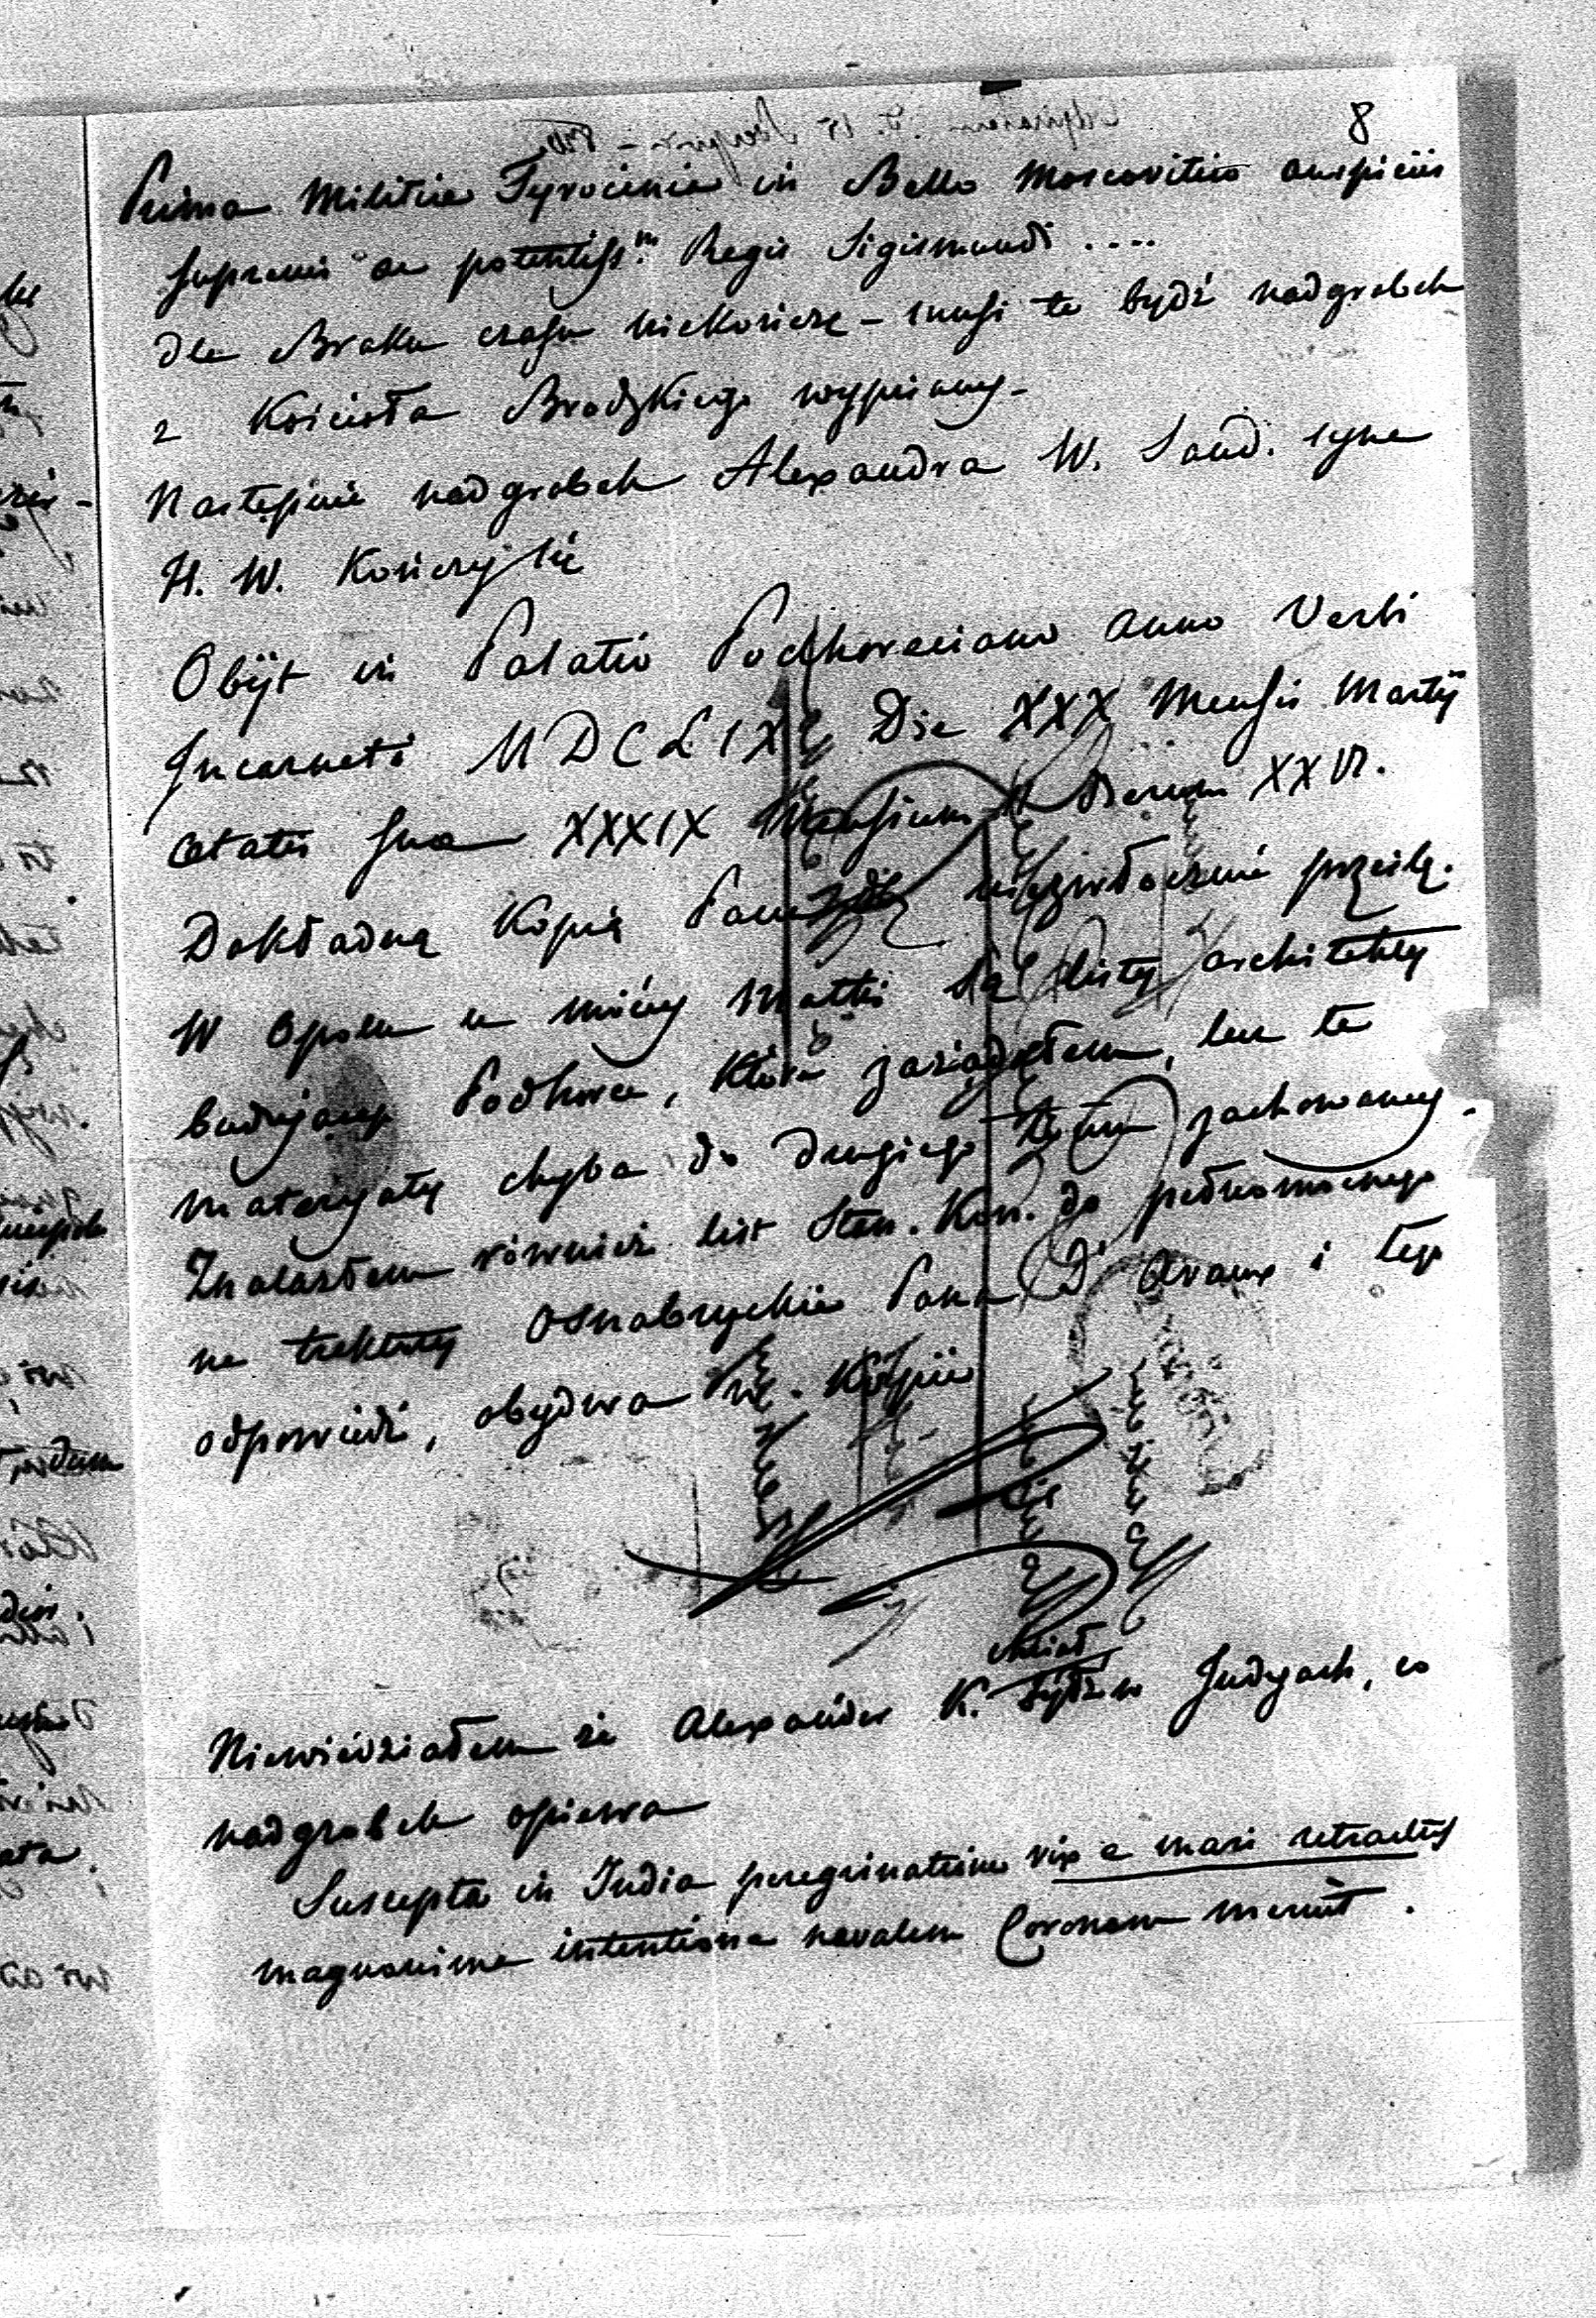 8
Prima Militiae Tyrocinia in Bello Moscovitico auspiciis
supremis ac potentiss.m Regis Sigismundi ....
dla Braku czasu niekończę – musi to bydź nadgrobek
z Kościoła Brodzkiego wypisany –
Następnie nadgrobek Alexandra W. Sand. syna
H. W. Kończy się
Obijt in Palatio Podhoreciano Anno Verbi
Incarnati MDCLIX Die XXX Mensis Martij
aetatis sua XXXIX Mensium Dierum XXVI.
Dokładną Kopią Panu niezwłocznie prześlę.
W Opolu u méiey Matki są listy architekty
budującego Podhorce, które zażądałem, lecz te
materyały chyba do drugiego Tomu zachowamy.
Znalazłem również list Stan. Kon. do pełnomocnego
na traktaty Osnabryckie Pana D' Avaux i tego
odpowiedź, obydwa w Kopii
chciał
Niewiedziałem że Alexander K. w Indyach, co
nadgrobek opiewa
Suscepta in India peregrinatione vix e mari retractus
magnanima intentione navalem Coronam meruit.